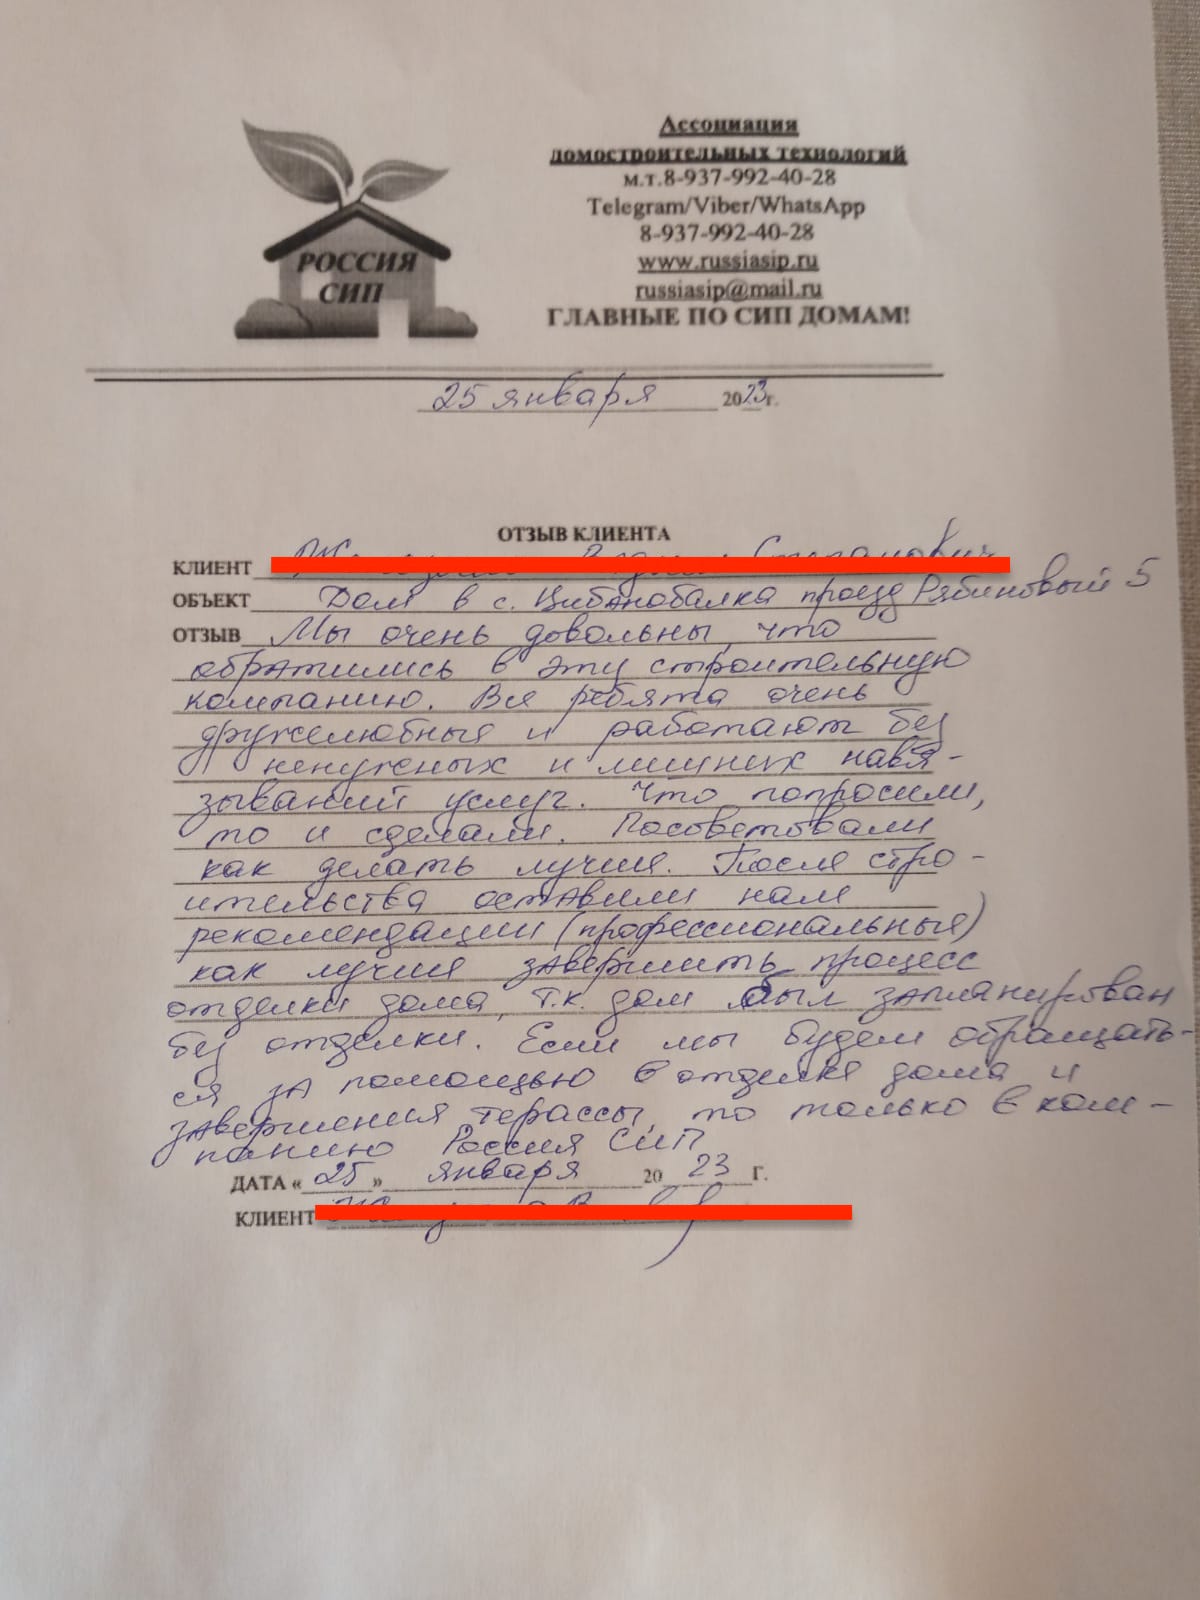 РОССИЯ
СИП
Ассоциация
домостроительных технологий
м.т.8-937-992-40-28
Telegram/Viber/WhatsApp
8-937-992-40-28
www.russiasip.ru
russiasip@mail.ru
ГЛАВНЫЕ ПО СИП ДОМАМ!
25 января 2023г.
ОТЗЫВ КЛИЕНТА
КЛИЕНТ
ОБЪЕКТ Дом в с. Цибанобалка проезд Рябиновый 5
ОТЗЫВ Мы очень довольны, что
обратились в эту строительную
компанию. Все ребята очень
дружелюбные и работают без
ненужных и лишних навя-
зываний услуг. Что попросили,
то и сделали. Посоветовали
как делать лучше. После стро-
ительства оставили нам
рекомендации (профессиональные)
как лучше завершить процесс
отделки дома, т.к. дом был запланирован
без отделки. Если мы будем обращать-
ся за помощью в отделке дома и
завершения терассы, то только в ком-
панию Россия СИП
ДАТА «25» января 2023 г.
КЛИЕНТ